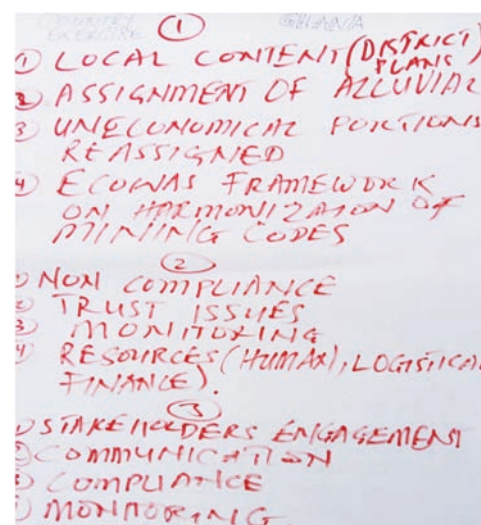 COUNTRY EXERCISE GHANA
①
① LOCAL CONTENT (DISTRICT
PLANS)
② ASSIGNMENT OF ALLUVIAL
③ UNECONOMICAL PORTIONS
REASSIGNED
④ ECOWAS FRAMEWORK
ON HARMONIZATION OF
MINING CODES
②
① NON COMPLIANCE
② TRUST ISSUES
③ MONITORING
④ RESOURCES (HUMAN), LOGISTICAL
FINANCE).
③
① STAKEHOLDERS ENGAGEMENT
② COMMUNICATION
③ COMPLIANCE
④ MONITORING